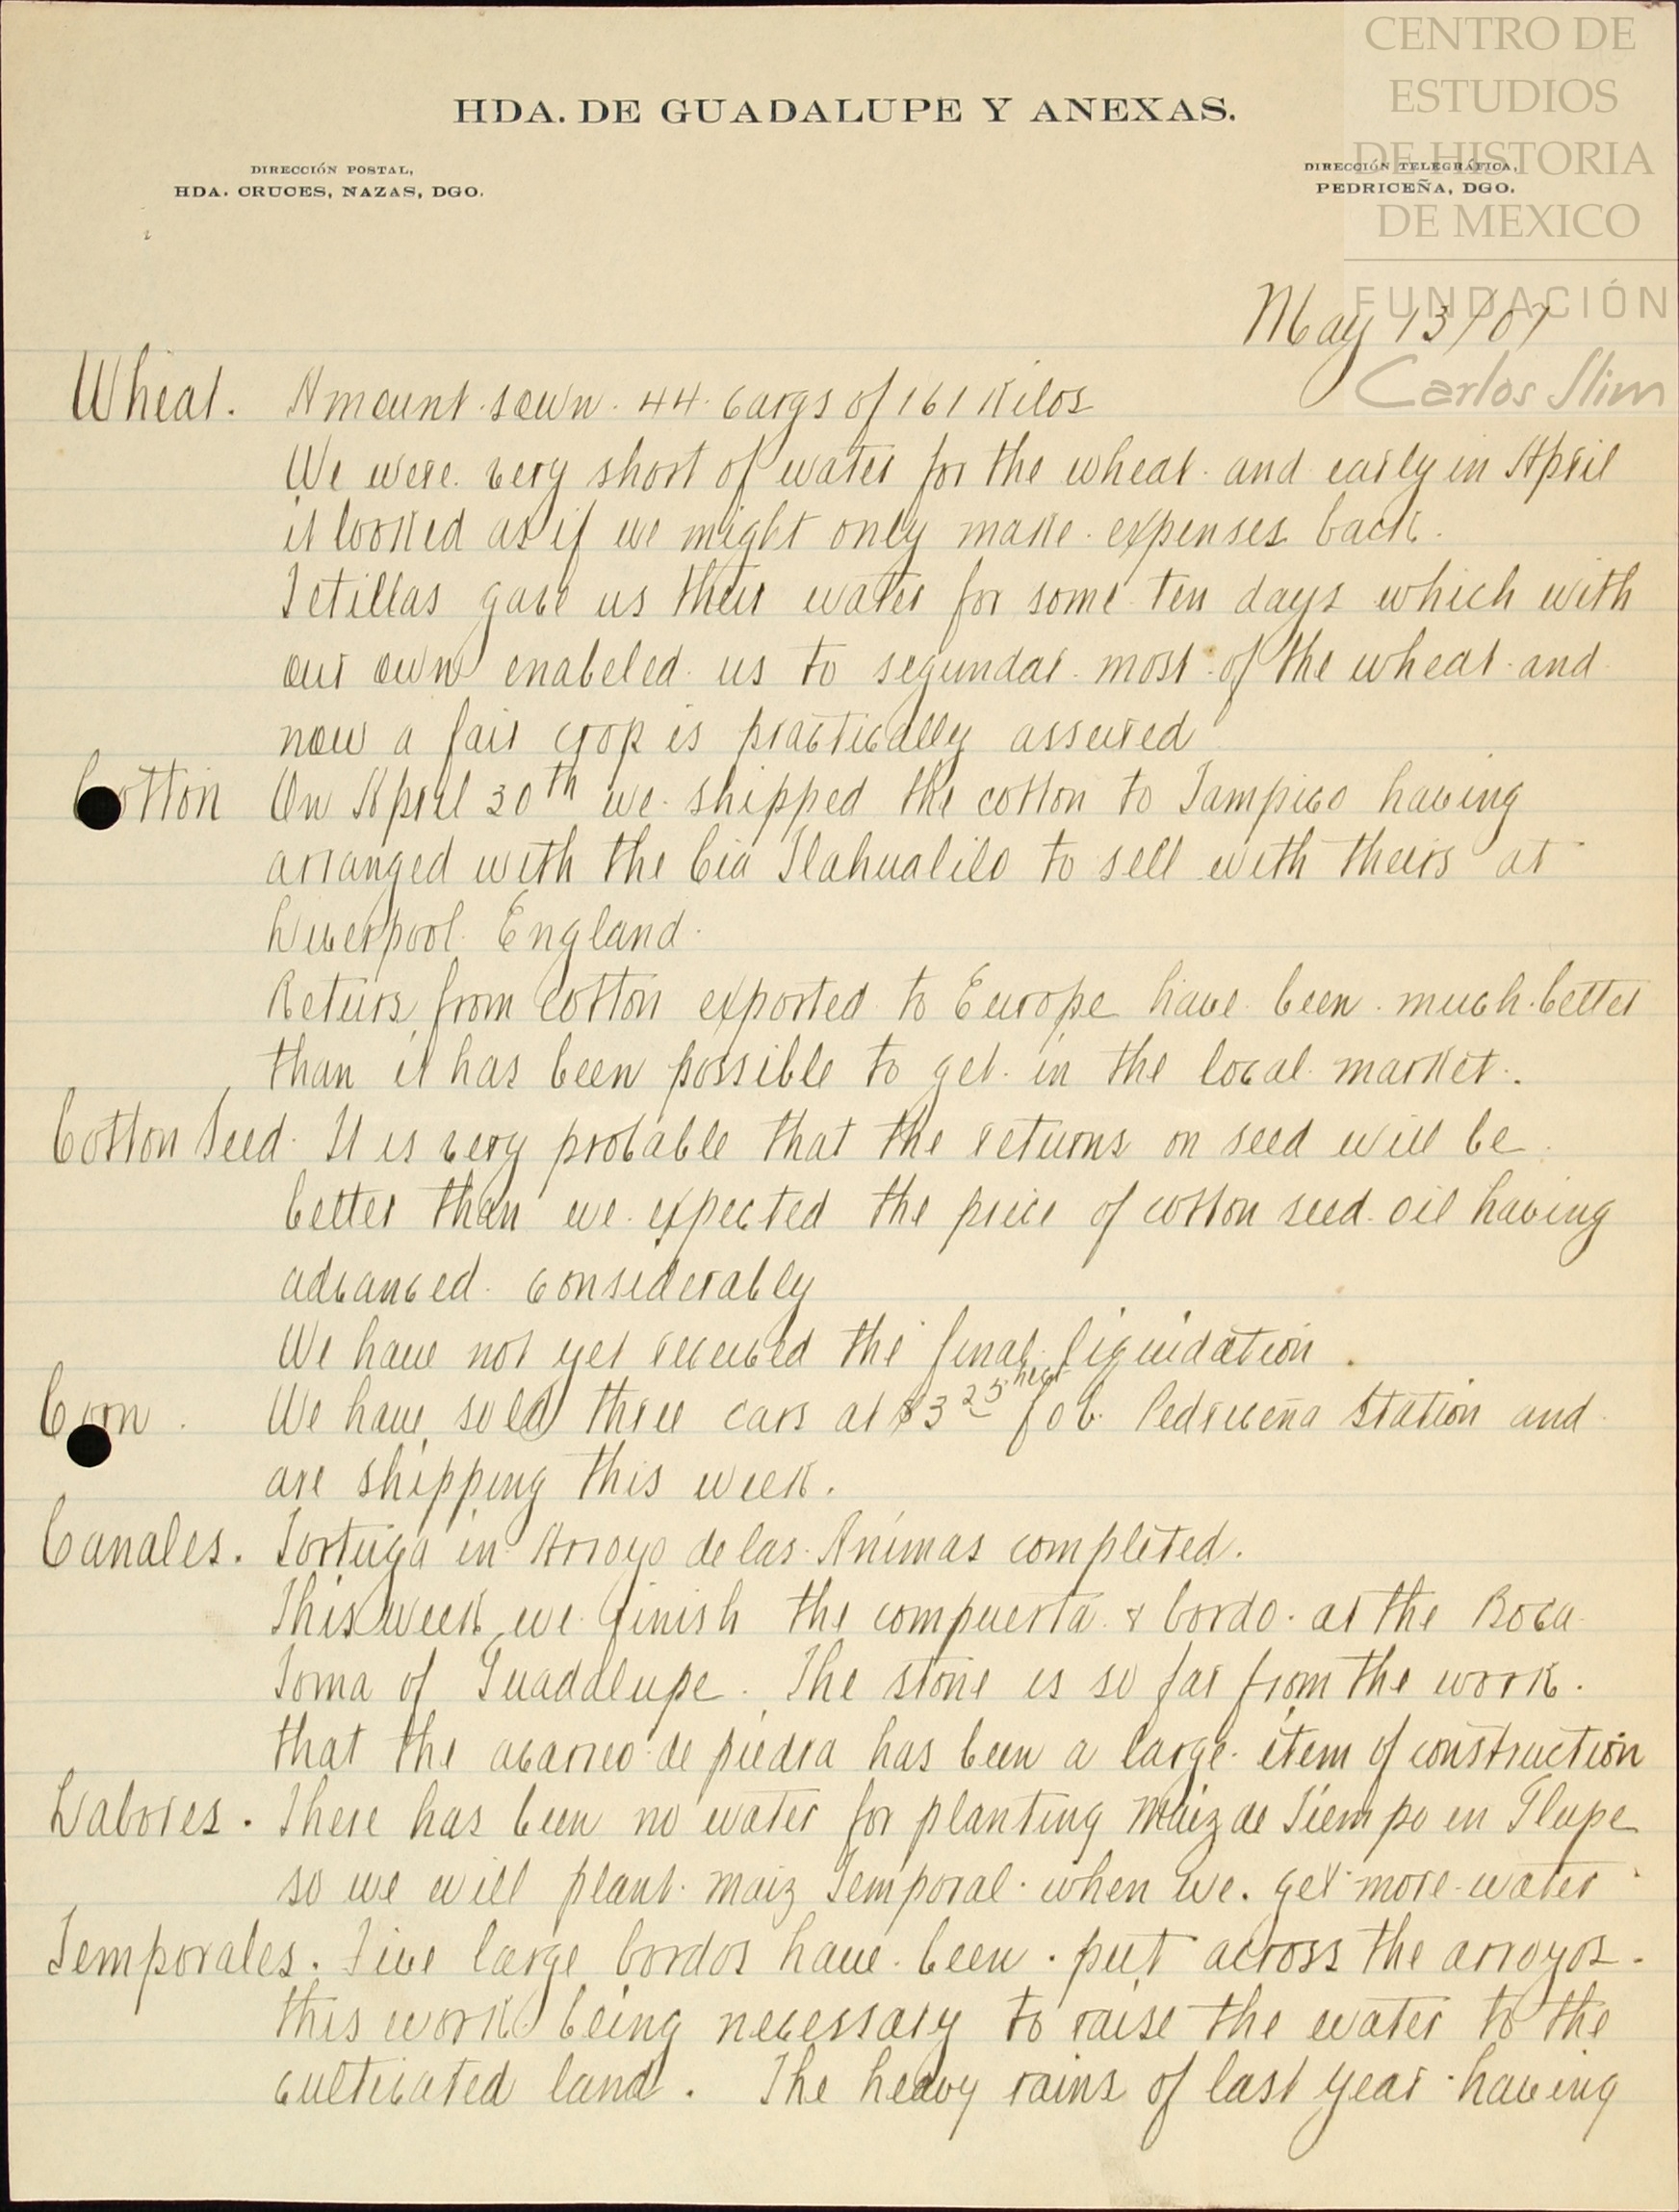 CENTRO DE
ESTUDIOS
DE HISTORIA
DE MEXICO
FUNDACIÓN
Carlos Slim
HDA. DE GUADALUPE Y ANEXAS.
DIRECCIÓN POSTAL,
HDA. CRUCES, NAZAS, DGO.
DIRECCIÓN TELEGRÁFICA,
PEDRICEÑA, DGO.
May 13/07
Wheat. Amount sown 44 cargs of 161 Kilos
We were very short of water for the wheat and early in April
it looked as if we might only make expenses back.
Tetillas gave us their water for some ten days which with
our own enabeled us to segundar most of the wheat and
now a fair crop is practically assured
Cotton On April 30th we shipped the cotton to Tampico having
arranged with the Cia Tlahualilo to sell with theirs at
Liverpool England.
Returs from cotton exported to Europe have been much better
than it has been possible to get in the local market.
Cotton Seed. It is very probable that the returns on seed will be
better than we expected the price of cotton seed oil having
advanced considerably
We have not yet received the final liquidation.
Corn. We have sold three cars at $3 25 hect fob. Pedriceña Station and
are shipping this week.
Canales. Tortuga in Arroyo de las Animas completed.
This week we finish the compuerta & bordo at the Boca
Toma of Guadalupe. The stone is so far from the work.
that the acarreo de piedra has been a large item of construction
Labores. There has been no water for planting Maiz de Tiempo en Glupe
so we will plant maiz Temporal when we get more water
Temporales. Five large bordos have been put across the arroyos.
this work being necessary to raise the water to the
cultivated land. The heavy rains of last year having